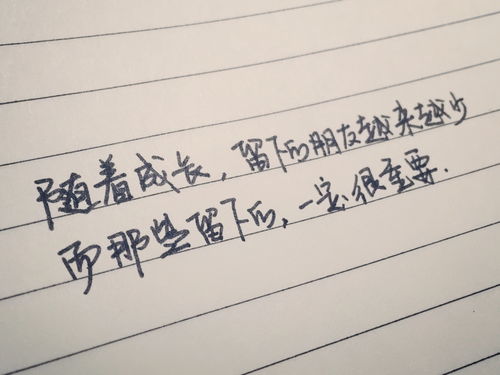 随着成长，留下的朋友越来越少
而那些留下的，一定很重要.